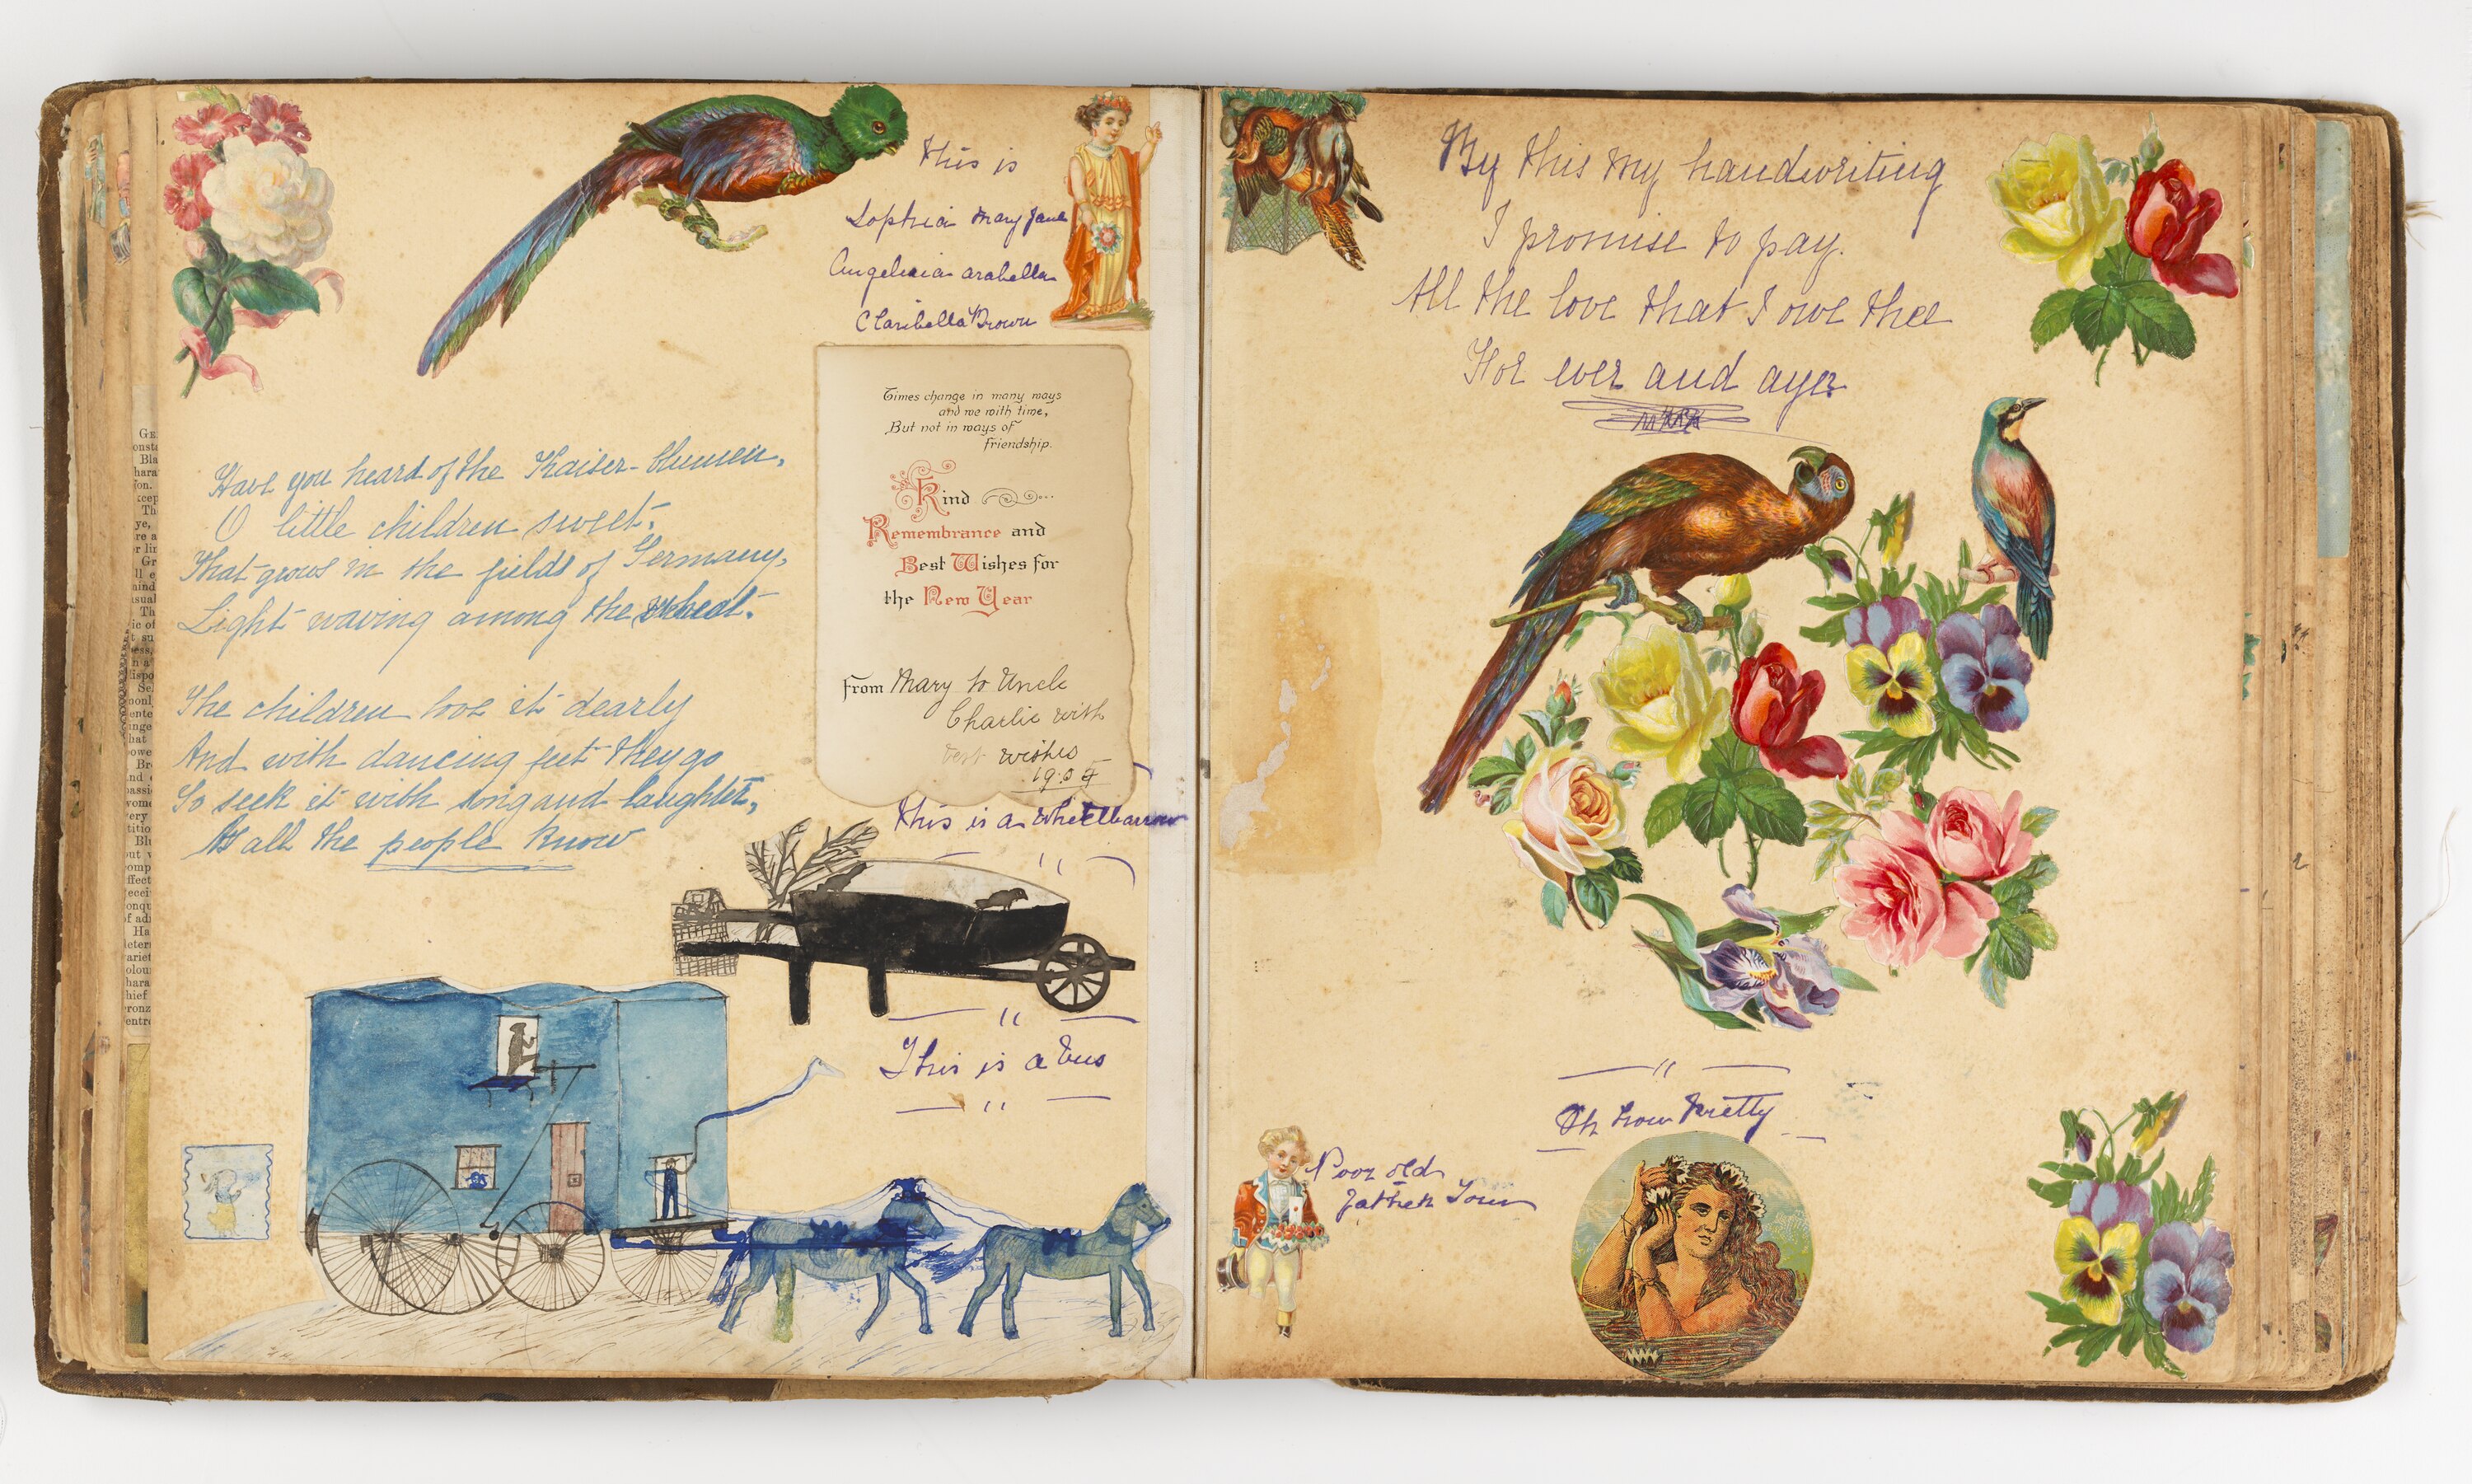 this is
Sophia Mary Jane
Angelicia arabella
Claribella Brown
Times change in many ways
and we with time,
But not in ways of
friendship.
Kind
Remembrance and
Best Wishes for
the New Year
From Mary to Uncle
Charlie with
best wishes
1905
Have you heard of the Kaiser-blumen,
O little children sweet,
That grows in the fields of Germany,
Light waving among the wheat.
The children love it dearly
And with dancing feet they go
To seek it with song and laughter,
As all the people know
this is a wheelbarrow
This is a bus
By this my handwriting
I promise to pay.
All the love that I owe thee
For ever and aye
Oh how Pretty
Poor old
father Tom